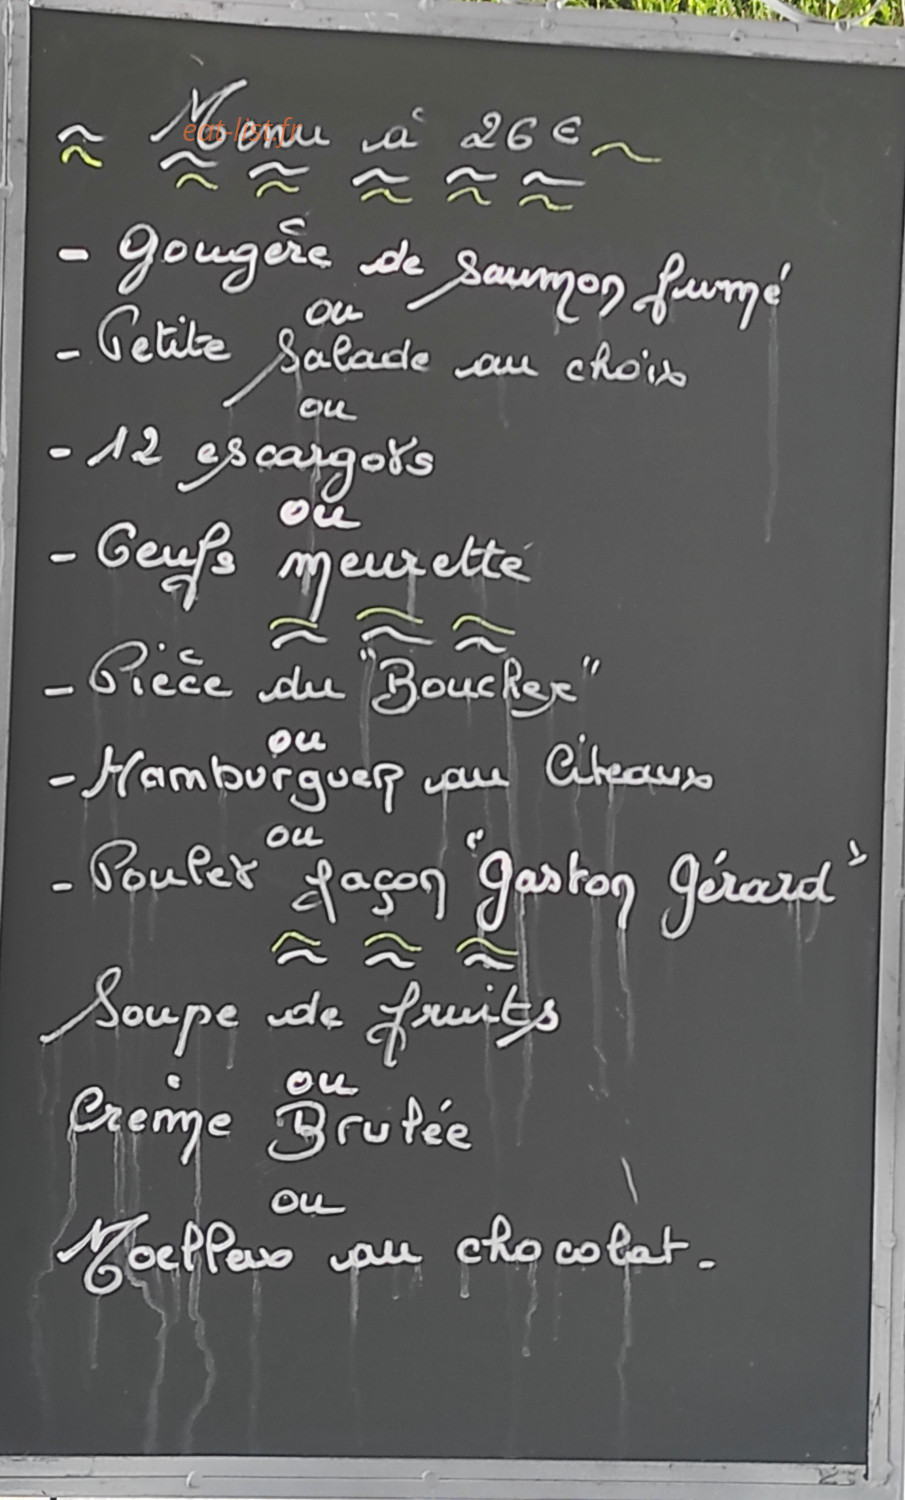 Menu à 26€
eat-list.fr
- Gougère de saumon fumé
ou
- Petite salade au choix
ou
- 12 escargots
ou
- Oeufs meurette
- Pièce du "Boucher"
ou
- Hamburguer au Citeaux
ou
- Poulet façon "Gaston Gérard"
Soupe de fruits
ou
Crème Brulée
ou
Moelleux au chocolat.